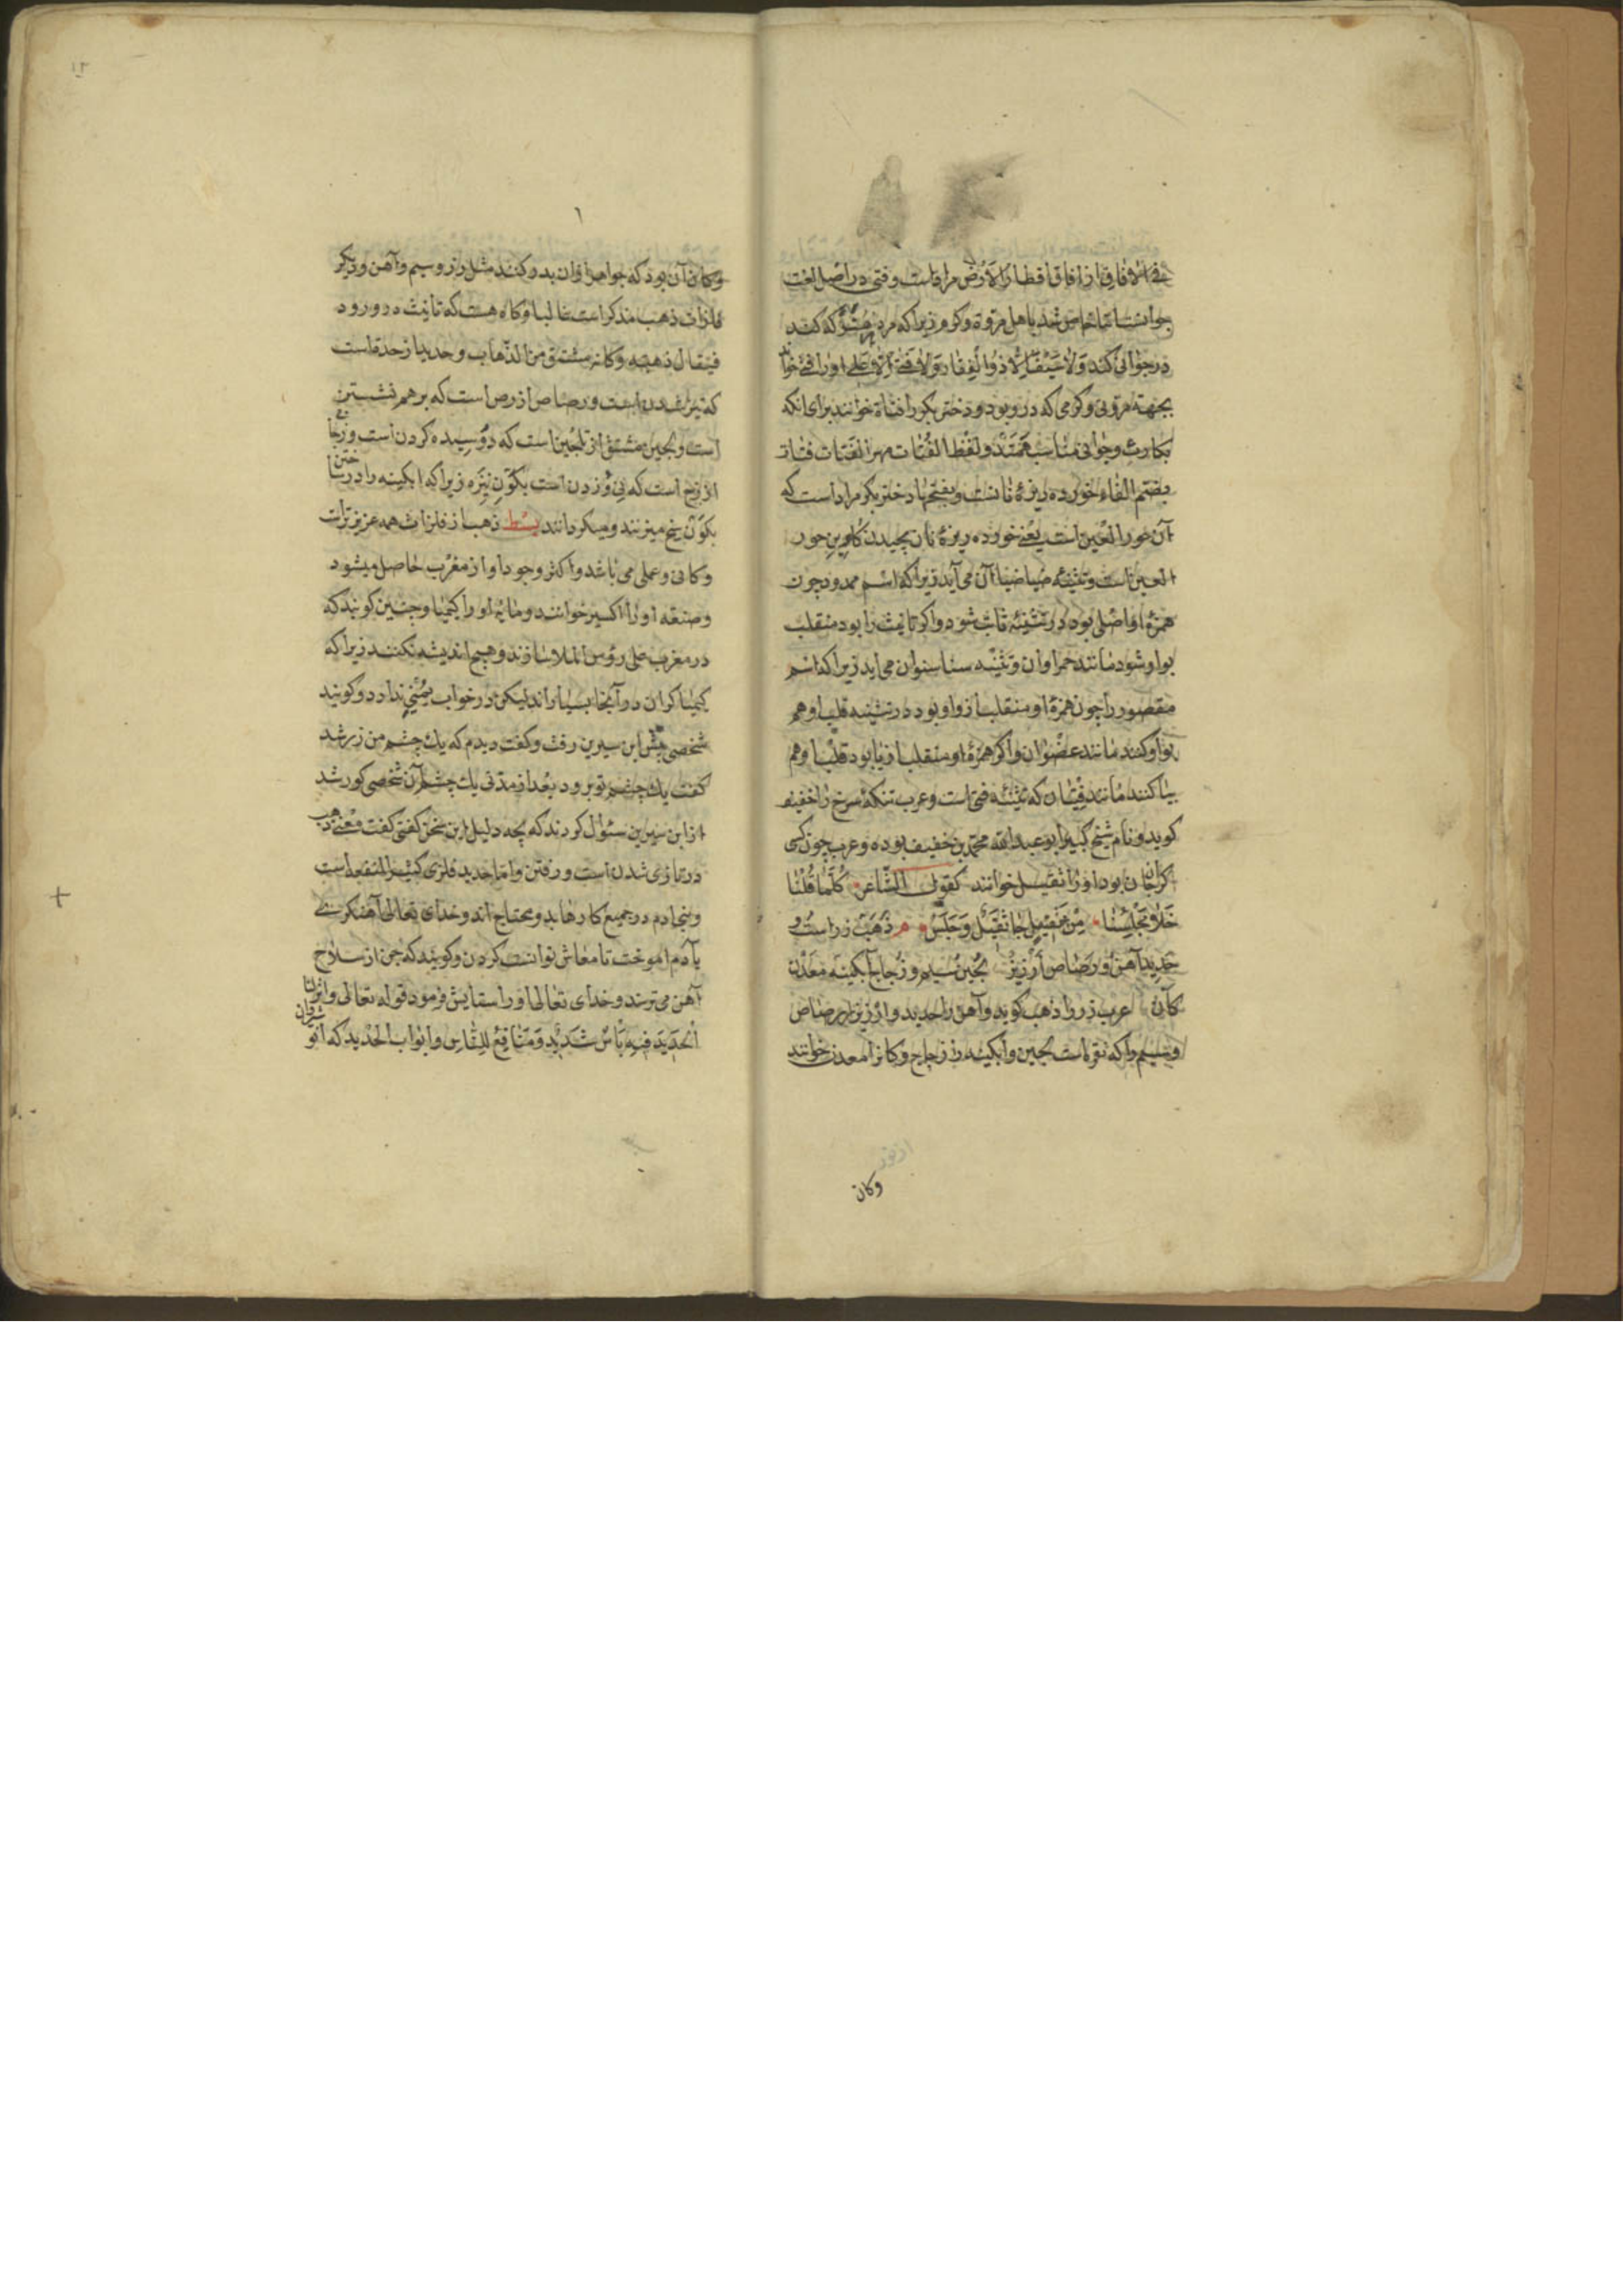 فی الآفاق از افاق اقطار الارض مراد است و فتی در اصل لغت
جوانست اما خاص شد باهل مروة و کرم زیرا که مرد
در جوانی کند ولا سیف الا ذوالفقار ولا فتی الا علی او را فتی خوانند
بجهة مروتی و کرمی که درو بود و دختر بکر را فتاة خوانند برای انکه
بکارت و جوانی مناسب همند و لفظ الفتات مهر الفتات فتات
بضم الفاء خورده ریزۀ نانست و بفتح فا دختر بکر مراد است که
آن حور العین است یعنی خورده ریزۀ نان بچیدن کابین حور
العین است و تثنیه ضیا ضیاآن می آید زیرا که اسم ممدود چون
همزۀ او اصلی بود در تثنیه ثابت شود و اگر تانیث را بود منقلب
بواو شود مانند حمراوان و تثنیه سنا سنوان می اید زیرا که اسم
مقصور را چون همزۀ او منقلب از واو بود در تثنیه قلب او هم
بواو کنند مانند عضوان و اگر همزۀ او منقلب از یا بود قلب او هم
بیا کنند مانند فتیان که تثنیه فتی است و عرب تنکۀ سرخ را خفیف
کوید و نام شیخ کبیر ابو عبد الله محمد بن خفیف بوده و عرب چون کسی
کران جان بود او را ثقیل خوانند کقول الشاعر کلما قلنا
خلا مجلسنا جا ثقیل و جلس ذهب زر است و
حدید آهن و رصاص ارزیز لجین سیم و زجاج آبکینه معدن
کان عرب زر را ذهب کوید و آهن را حدید و ارزیز را رصاص
و سیم را که نقره است لجین و ابکینه را زجاج و کان را معدن خوانند
وکان
۱۳
و کان آن بود که جواهر ازان بدو کنند مثل زر و سیم و آهن و دیکر
فلزات ذهب مذکر است غالبا و کاه هست که تانیث درو رود
فیقال ذهبه و کانه مشتق من الذهاب و حدید از حدة است
که تیز شدن است و رصاص از رص است که برهم نشستن
است و لجین مشتق از تلجین است که دوسیده کردن است و زجاج
از زج است که بن زدن است بکون نیزه زیرا که ابکینه را در ساختن
بکون یخ میزنند و میکردانند بسط ذهب از فلزات همه عزیزتر است
و کانی و عملی می باشد و اکثر وجود او از مغرب حاصل میشود
و صنعه او را اکسیر خوانند و مایه او را کیمیا و چنین کویند که
در مغرب علی رؤس الملا سازند و هیچ اندیشه نکنند زیرا که
کیمیا کران در آنجا بسیار اند لیکن در خواب یمنی ندارد و کویند
شخصی پیش ابن سیرین رفت و کفت دیدم که یک چشم من زر شد
کفت یک چشم تو برود بعد از مدتی یک چشم آن شخصی کور شد
از ابن سیرین سئوال کردند که بچه دلیل این سخن کفتی کفت معنی ذهب
در تازی شدن است و رفتن و اما حدید فلزی کثیر المنفعه است
و بنی ادم در جمیع کارها بدو محتاج اند و خدای تعالی آهنکری
بآدم اموخت تا معاش توانست کردن و کویند که جن از سلاح
آهن می ترسند و خدای تعالی او را ستایش فرمود قوله تعالی و انزلنا
الحدید فیه باس شدید و منافع للناس و ابواب الحدید که